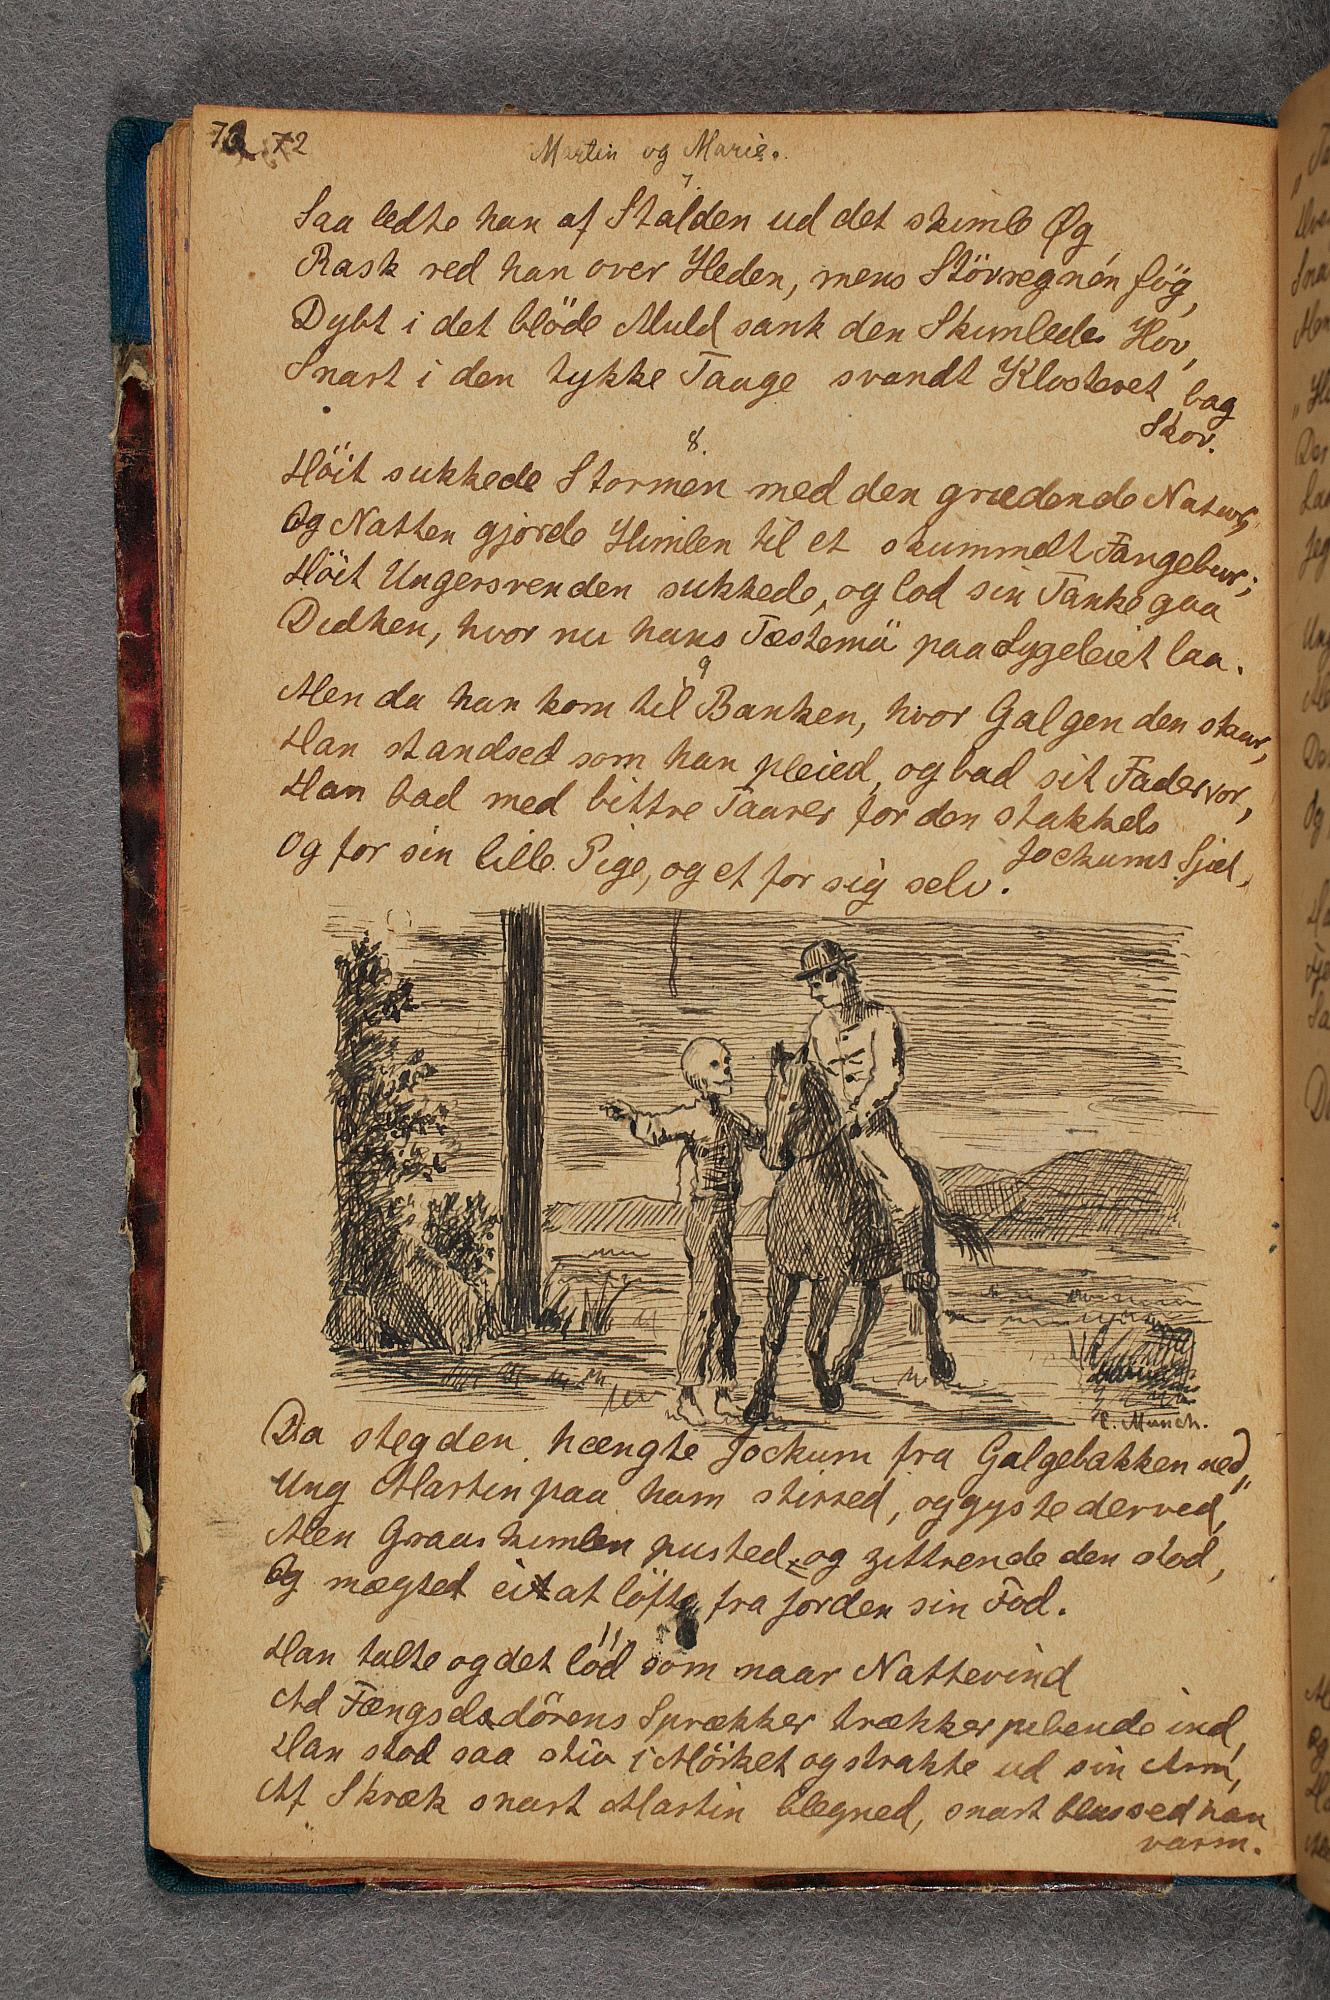 72 72
Martin og Marie.
7.
Saa ledte han af Stalden ud det skimle Øg
Rask red han over Heden, mens Störregnen fög,
Dybt i det blöde Muld sank den Skimledes Hov,
Snart i den tykke Taage svandt Klosteret bag
Skov.
8.
Höit sukkede Stormen med den grædende Natur,
Og Natten gjorde Himlen til et skummelt Fangebur;
Höit Ungersvenden sukkede, og lod sin Tanke gaa
Didhen, hvor nu hans Fæstemö paa Sygeleiet laa.
9
Men da han kom til Banken, hvor Galgen den staar,
Han standsed som han pleied, og bad sit Fadervor,
Han bad med bittre Taarer for den stakkels
Jockums Sjæl,
Og for sin lille Pige, og et for sig selv.
E. Munch.
Da steg den hængte Jockum fra Galgebakken ned,
Ung Martin paa ham stirred, og gyste derved,
Men Graaskimlen pusted, og zittrende den stod,
Og mægted ei at löfte fra Jorden sin Fod.
11
Han talte og det löd som naar Nattevind
Ad Fængselsdörens Sprækker trækker pibende ind,
Han stod saa stiv i Mörket og strakte ud sin Arm,
Af Skræk snart Martin blegned, snart blussed han
varm.